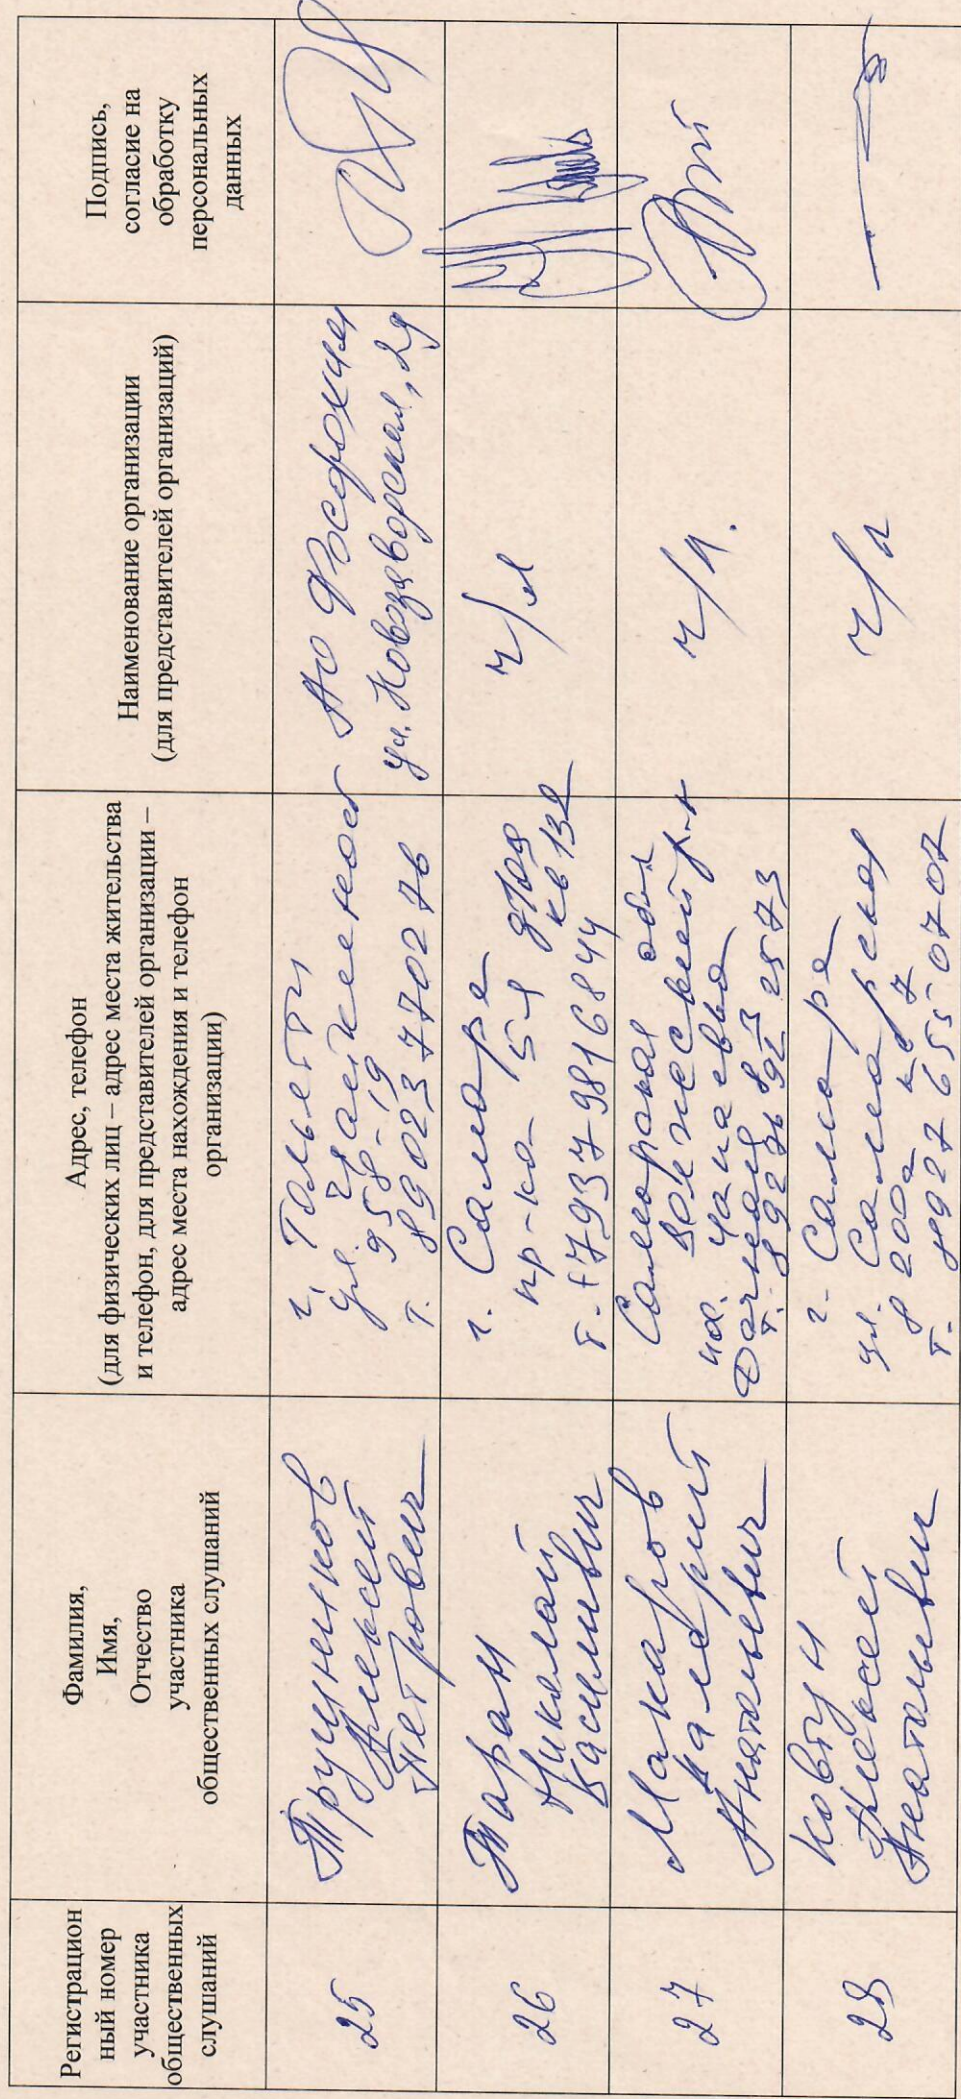 Регистрацион
ный номер
участника
общественных
слушаний
Фамилия,
Имя,
Отчество
участника
общественных слушаний
Адрес, телефон
(для физических лиц – адрес места жительства
и телефон, для представителей организации –
адрес места нахождения и телефон
организации)
Наименование организации
(для представителей организаций)
Подпись,
согласие на
обработку
персональных
данных
25
Трунников
Алексей
Петрович
г. Тольятти
ул.
95
т. 89023770276
АО Фосфохим
ул. Новозаводская, 2д
26
Таран
Николай
Василивич
г. Самара
пр-ка 5-я
кв 132
т. +79379816844
ч/л
27
Макаров
Валерий
Анатольевич
Самарская обл
Волжский р-н
пос.
ч/л.
28
Ковтун
Алексей
Анатольевич
г. Самара
ул. Самарская
200а кв 7
т. 8927 655 0707
ч/л